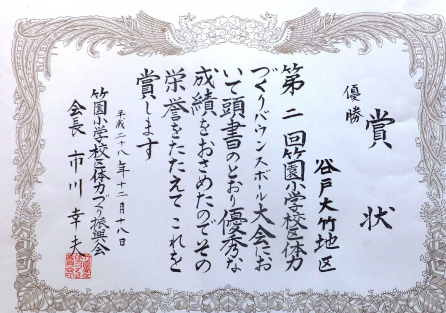 賞状
優勝
谷戸大竹地区
第二回竹園小学校区体力
づくりバウンスボール大会にお
いて頭書のとおり優秀な
成績をおさめたのでその
栄誉をたたえてこれを
賞します
平成二十八年十二月十八日
竹園小学校区体力づくり振興会
会長 市川幸夫